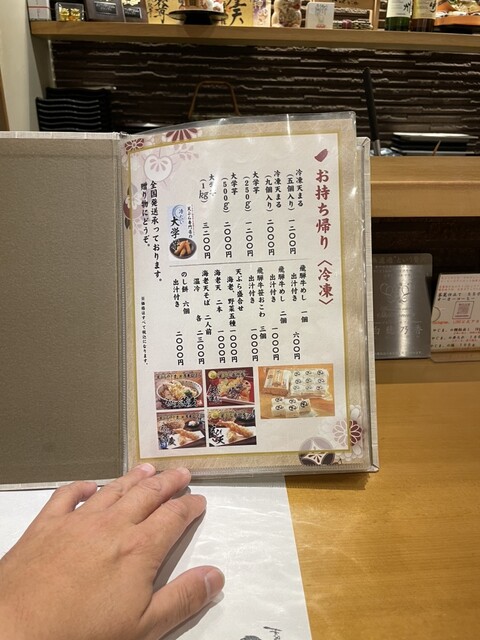 お持ち帰り〈冷凍〉
冷凍天まる
(五個入り) 一二〇〇
冷凍天まる
(九個入り) 二〇〇〇
大学芋
(250g) 一二〇〇
大学芋
(500g) 二〇〇〇
大学芋
(1kg) 三二〇〇
大学
全国発送承っております。
贈り物にどうぞ。
飛騨牛めし 一個
出汁付き 六〇〇
飛騨牛めし 二個
出汁付き 一〇〇〇
飛騨牛笹おこわ 三個
出汁付き 一〇〇〇
天ぷら盛合せ
海老、野菜五種 一〇〇〇
海老天 二本 一〇〇〇
海老天そば 二人前
温冷 各 二三〇〇
のし餅 六個
出汁付き 二〇〇〇
※価格はすべて税込になります。